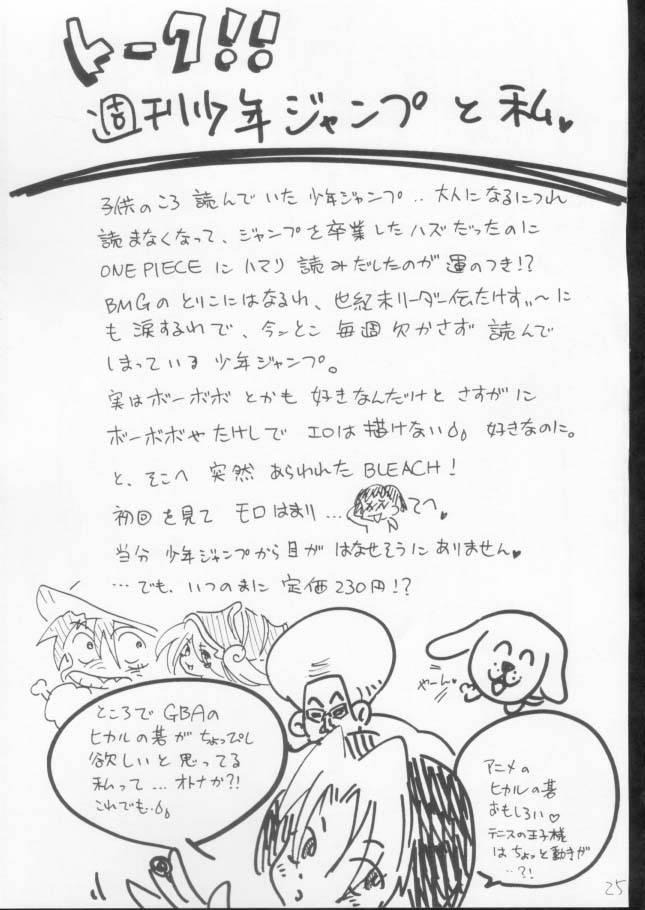 トーク!!
週刊少年ジャンプと私♥
子供のころ 読んでいた 少年ジャンプ‥大人になるにつれ
読まなくなって、ジャンプを卒業したハズだったのに
ONE PIECE に ハマリ 読みだしたのが 運のつき!?
BMGの とりこにはなるわ、世紀末リーダー伝たけすぃ〜に
も 涙するわで、今ンとこ 毎週 欠かさず 読んで
しまっている 少年ジャンプ。
実はボーボボ とかも 好きなんだけど さすがに
ボーボボや たけしで エロは 描けない 好きなのに。
と、そこへ 突然 あらわれた BLEACH!
初回を見て モロはまり… てへ♥
当分 少年ジャンプから目が はなせそうに ありません♥
…でも、いつのまに 定価230円!?
やーん
ところで GBAの
ヒカルの碁が ちょっぴし
欲しいと 思ってる
私って … オトナか?!
これでも‥
アニメの
ヒカルの碁
おもしろい♡
テニスの王子様
は ちょっと 動きが
‥?!
25